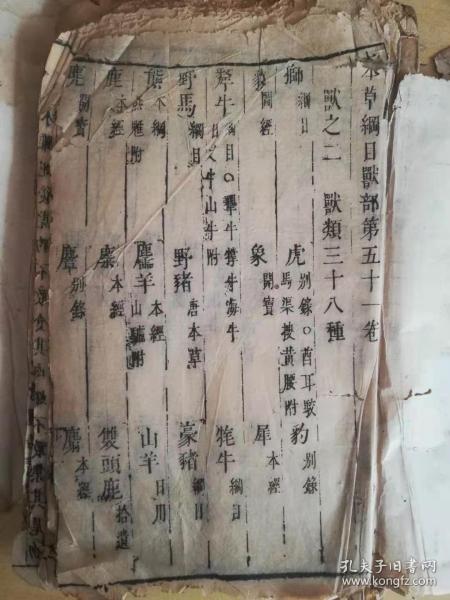 本草綱目獸部第五十一卷
獸之二 獸類三十八種
獅綱目 虎別錄○酋耳駮馬渠搜黃腰附 豹別錄
貘圖經 象開寶 犀本經
犛牛綱目○犩牛㹈牛海牛月支牛山牛附 牦牛綱目
野馬綱目 野豬唐本草 豪豬綱目
熊本經 羆魋附 麢羊本經山驢附 山羊日用
鹿本經 麋本經 雙頭鹿拾遺
麂開寶 麞別錄 麝本經
孔夫子旧书网
www.kongfz.com